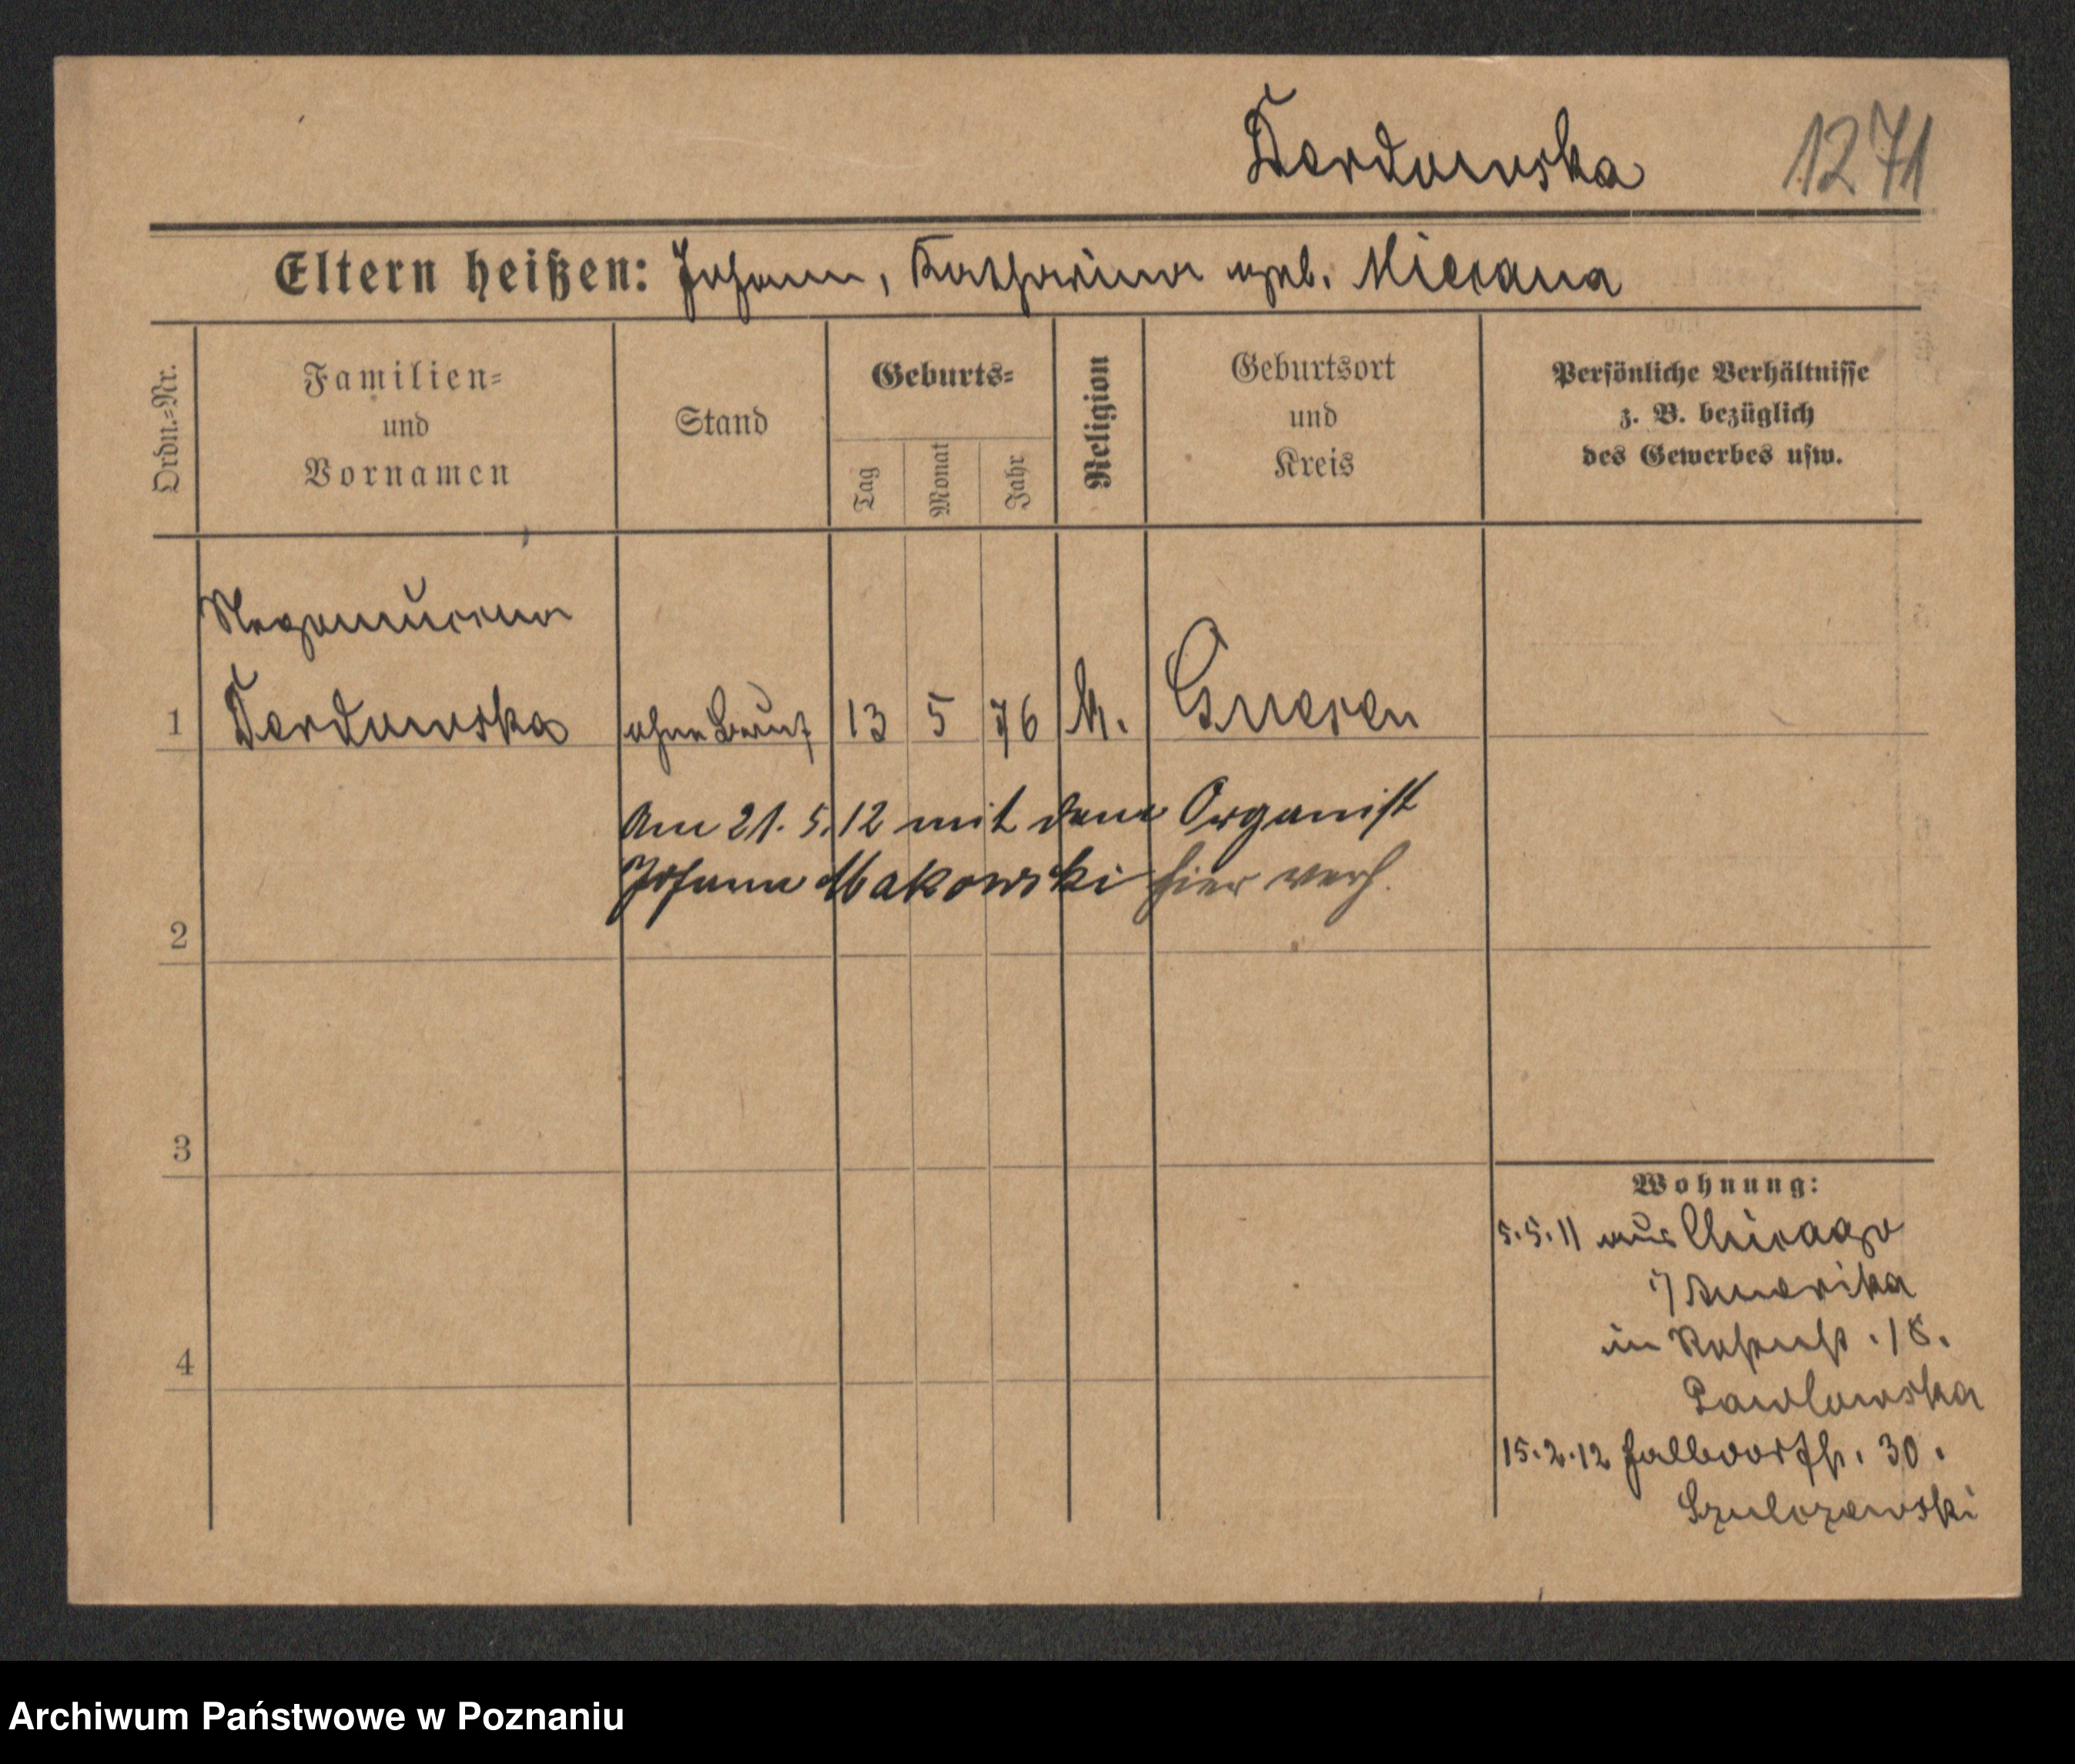 Derdowska 1271
Eltern heißen: Johann, Katharina geb. Mierana
Ordn.=Nr.
Familien=
und
Vornamen
Stand
Geburts=
Tag
Monat
Jahr
Religion
Geburtsort
und
Kreis
Persönliche Verhältnisse
z. B. bezüglich
des Gewerbes usw.
Nepomucena
1 Derdowska ohne Beruf 13 5 76 k. Gnesen
Am 21. 5. 12 mit dem Organist
Johann Makowski hier verh.
2
3
4
Wohnung:
5.5.11 aus Chicago
i/ Amerika
in 18.
Pawlowska
15.2.12 Halbdorfstr. 30.
Szulczewski
Archiwum Państwowe w Poznaniu